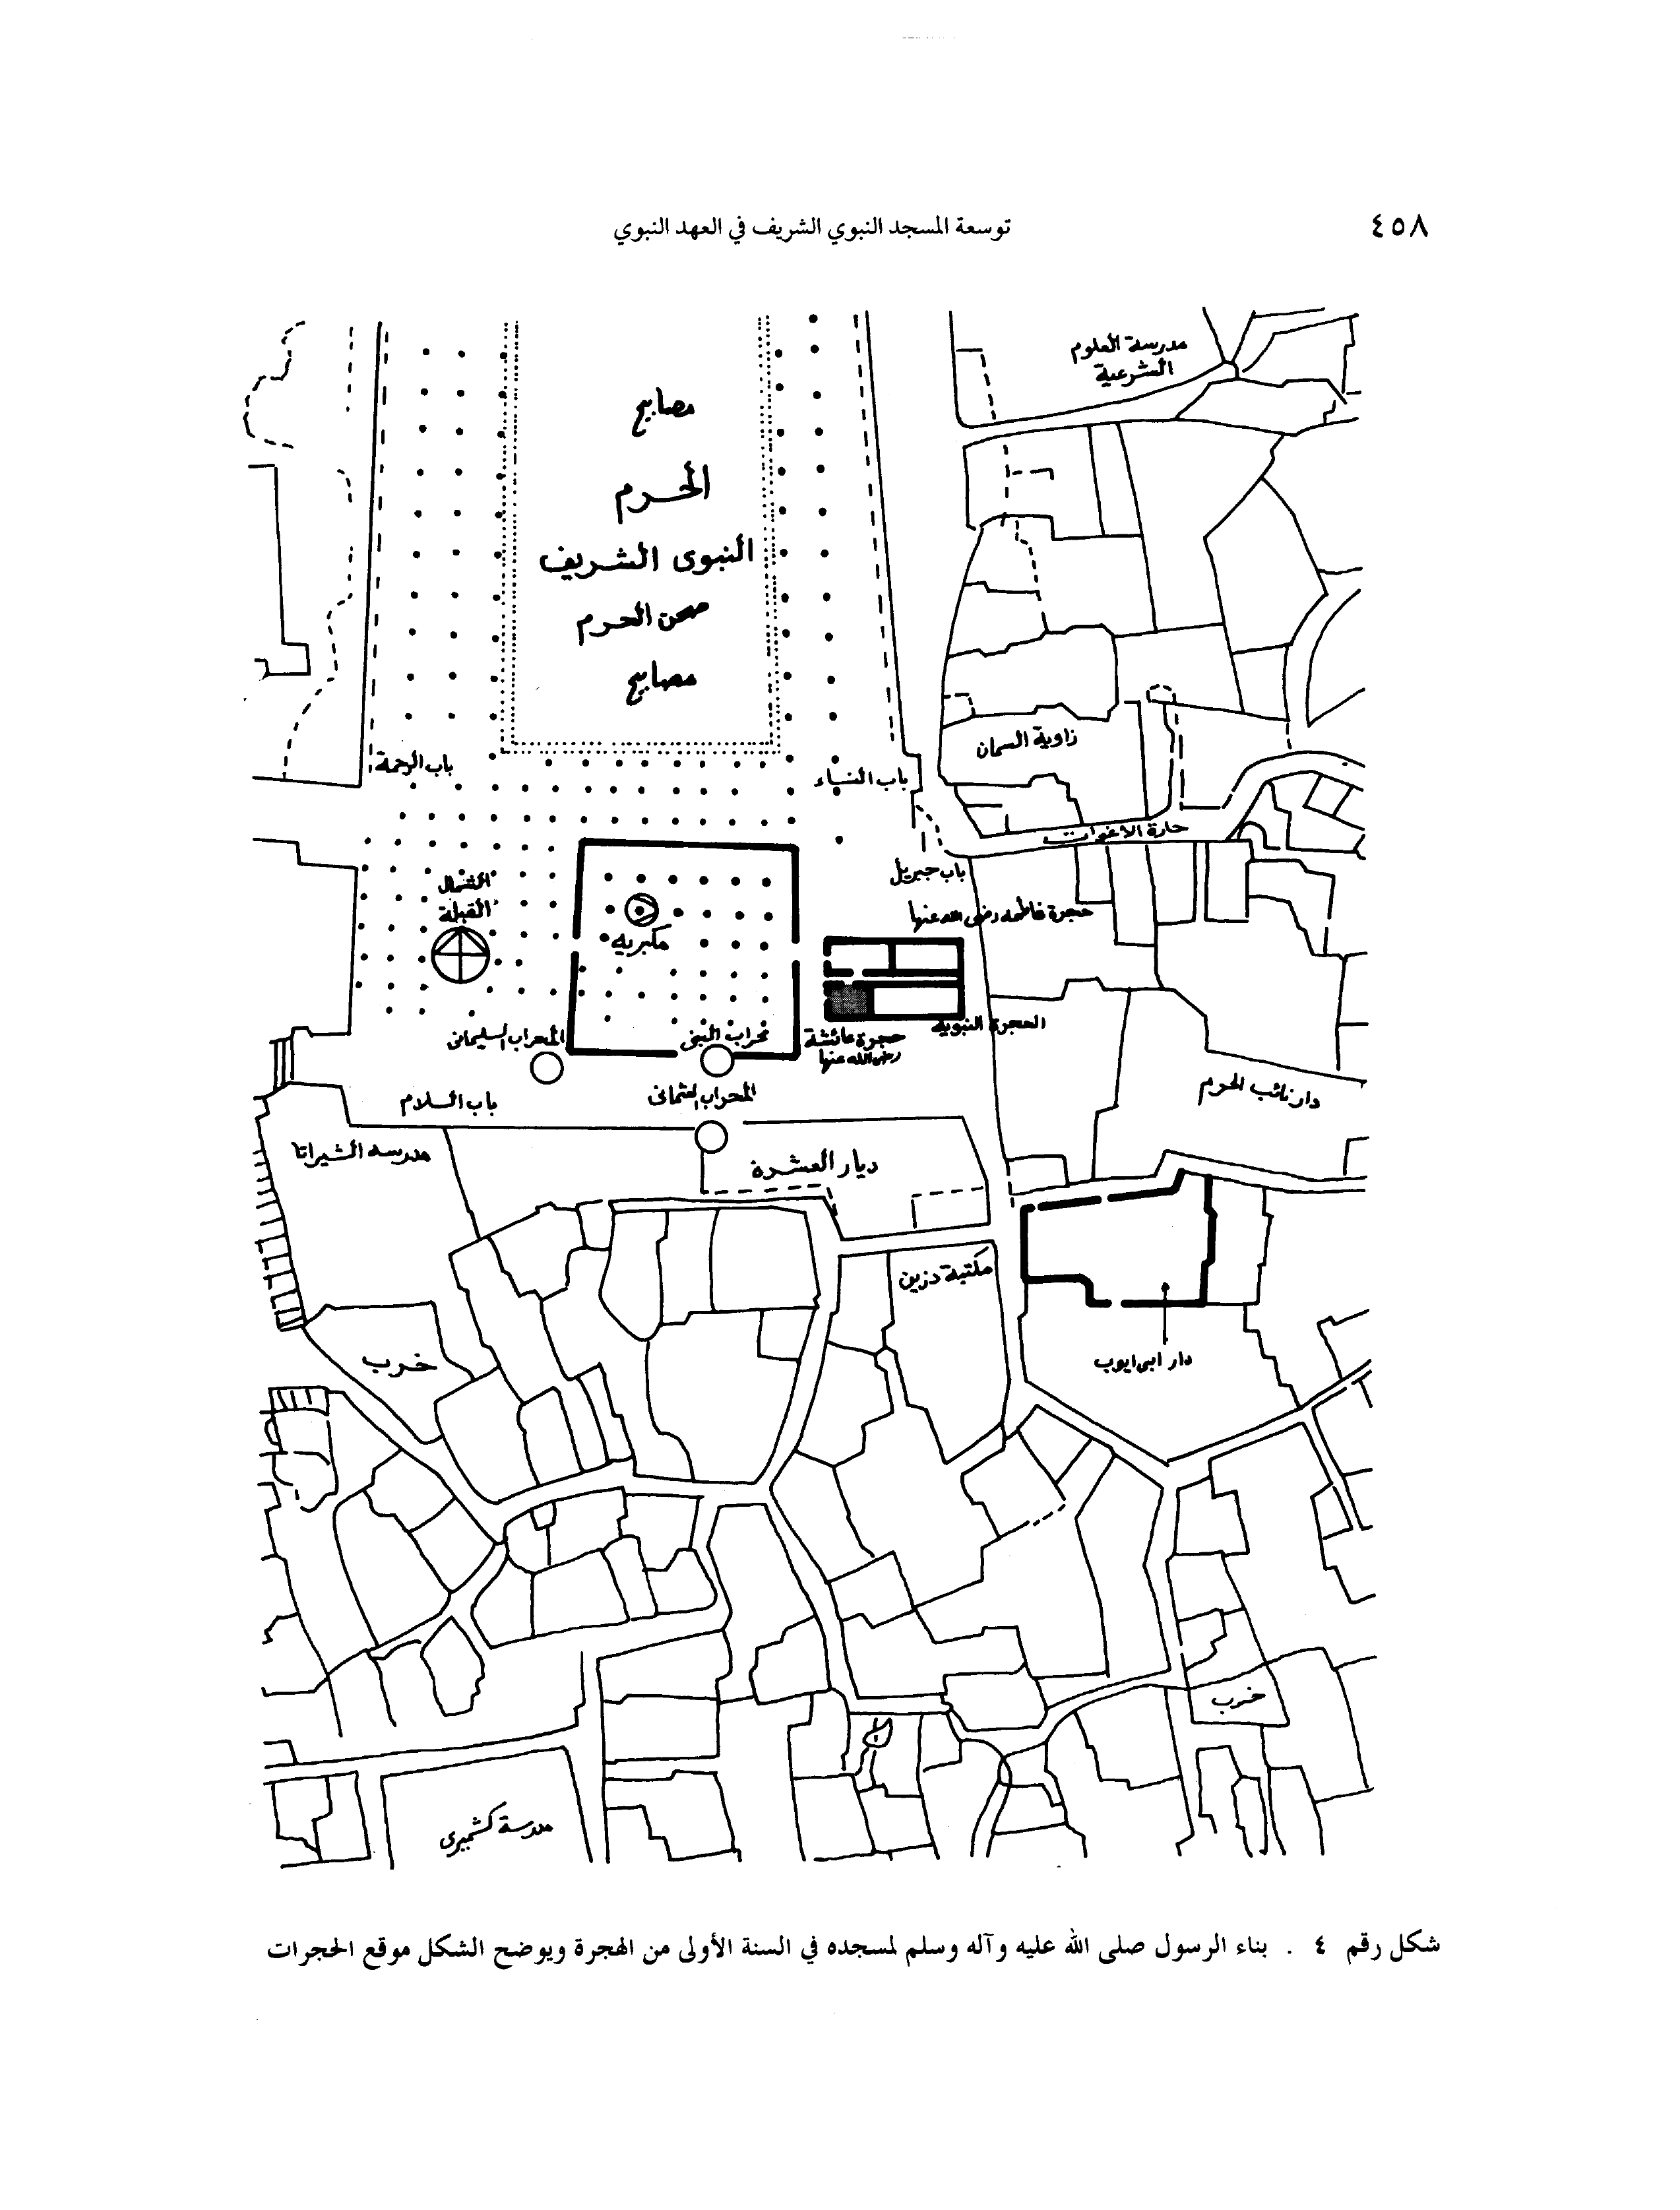 ٤٥٨
توسعة المسجد النبوي الشريف في العهد النبوي
مدرسة العلوم
الشرعية
مصابيح
الحرم
النبوى الشريف
صحن الحرم
مصابيح
زاوية السمان
باب الرحمة
باب النساء
حارة الاغوات
باب جبريل
الشمال
القبلة
حجرة فاطمه رضى الله عنها
مكبريه
الحجرة النبويه
المحراب السليمانى
محراب النبى
حجرة عائشة
رضى الله عنها
المحراب العثمانى
باب السلام
دار نائب الحرم
مدرسه الشيراتا
ديار العشرة
مكتبة دزين
خرب
دار ابى ايوب
خرب
مدرسة كشميرى
شكل رقم ٤ . بناء الرسول صلى الله عليه وآله وسلم لمسجده في السنة الأولى من الهجرة ويوضح الشكل موقع الحجرات